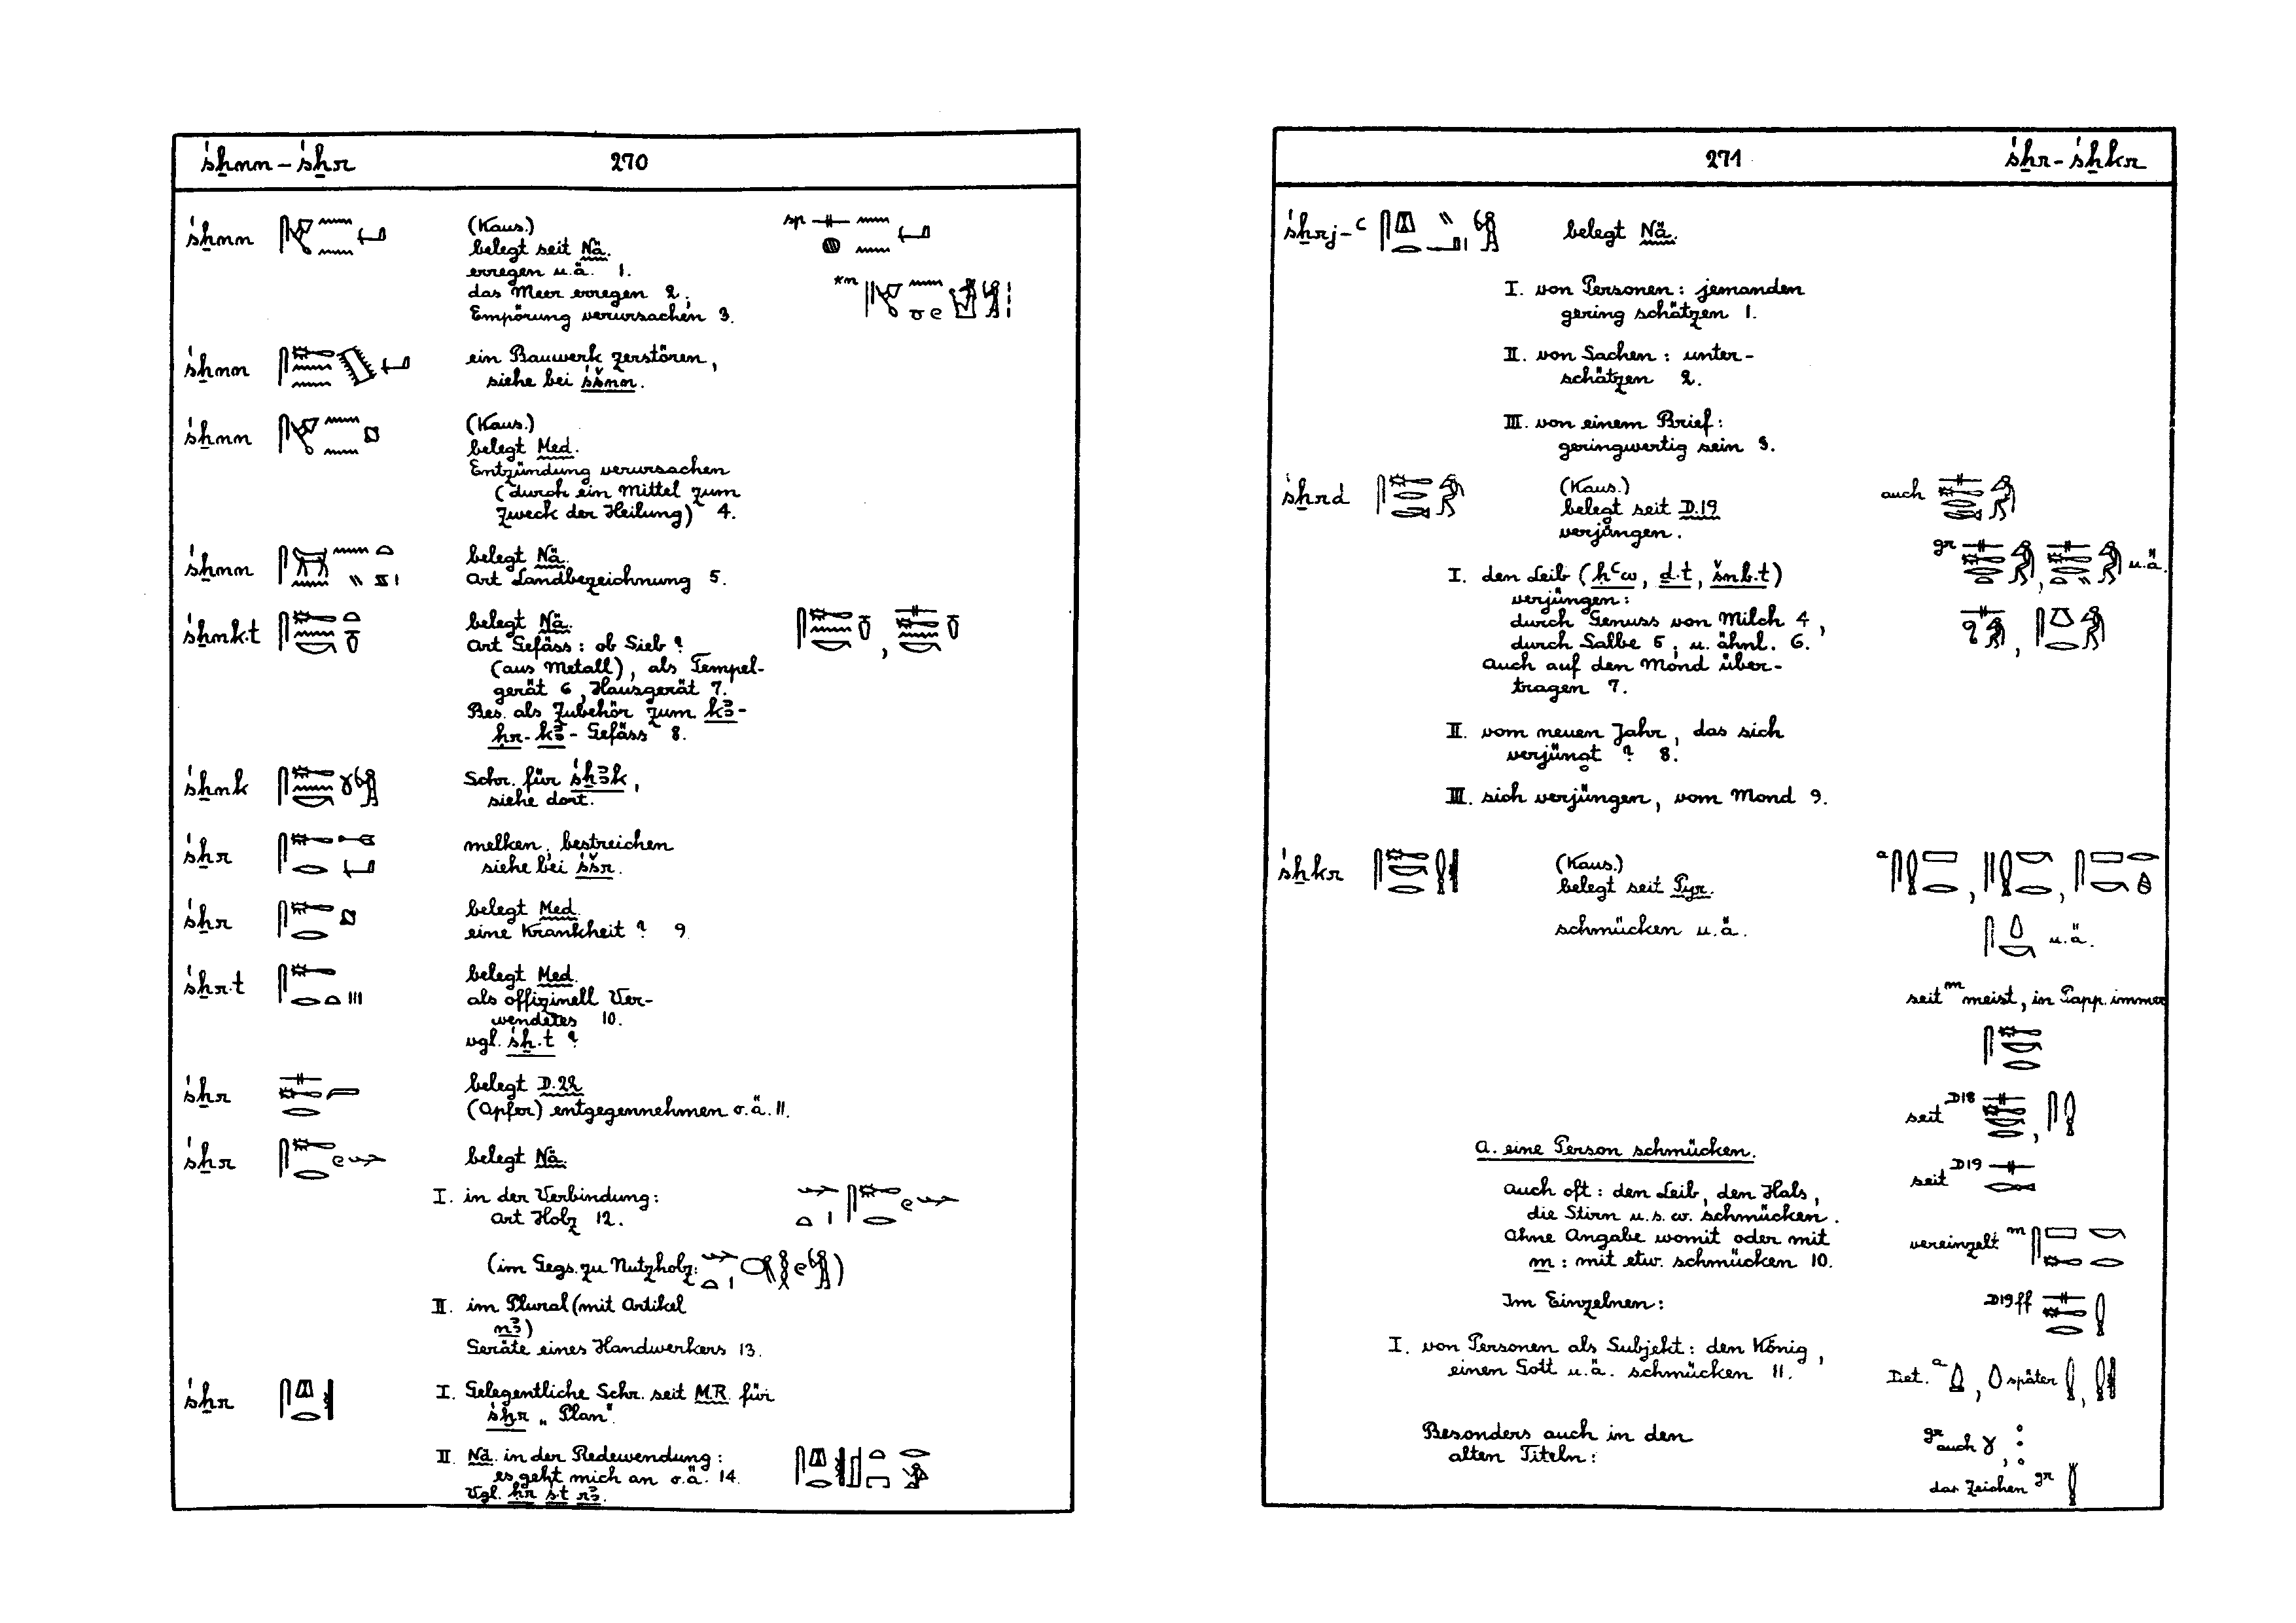 śẖnn – śẖr 270
śẖnn (Kaus.) sp
belegt seit Nä.
erregen u.ä. 1. *m
das Meer erregen 2;
Empörung verursachen 3.
śẖnn ein Bauwerk zerstören,
siehe bei śšnn.
śẖnn (Kaus.)
belegt Med.
Entzündung verursachen
(durch ein Mittel zum
Zweck der Heilung) 4.
śẖnn belegt Nä.
Art Landbezeichnung 5.
śẖnk.t belegt Nä.
Art Gefäss: ob Sieb?
(aus Metall), als Tempel-
gerät 6, Hausgerät 7.
Bes. als Zubehör zum kꜣ-
ḥr-kꜣ-Gefäss 8.
śẖnk Schr. für śẖꜣk,
siehe dort.
śẖr melken, bestreichen
siehe bei śšr.
śẖr belegt Med.
eine Krankheit? 9.
śẖr.t belegt Med.
als offizinell Ver-
wendetes 10.
vgl. śẖ.t?
śẖr belegt D.22
(Opfer) entgegennehmen o.ä. 11.
śẖr belegt Nä.
I. in der Verbindung:
Art Holz 12.
(im Gegs. zu Nutzholz: )
II. im Plural (mit Artikel
nꜣ)
Geräte eines Handwerkers 13.
śẖr I. Gelegentliche Schr. seit M.R. für
śḫr „Plan".
II. Nä. in der Redewendung:
es geht mich an o.ä. 14.
Vgl. ḥr śt rꜣ.
271 śẖr – śẖkr
śẖrj-ꜥ belegt Nä.
I. von Personen: jemanden
gering schätzen 1.
II. von Sachen: unter-
schätzen 2.
III. von einem Brief:
geringwertig sein 3.
śẖrd (Kaus.) auch
belegt seit D.19
verjüngen.
gr , u.ä.
I. den Leib (ḥꜥw, ḏ.t, šnb.t)
verjüngen:
durch Genuss von Milch 4,
durch Salbe 5, u. ähnl. 6.
Auch auf den Mond über-
tragen 7.
II. vom neuen Jahr, das sich
verjüngt? 8.
III. sich verjüngen, vom Mond 9.
śẖkr (Kaus.) a
belegt seit Pyr.
schmücken u.ä. u.ä.
seit m meist, in Papp. immer
seit D18
A. eine Person schmücken.
seit D19
Auch oft: den Leib, den Hals,
die Stirn u.s.w. schmücken.
Ohne Angabe womit oder mit vereinzelt m
m: mit etw. schmücken 10.
Im Einzelnen: D19ff
I. von Personen als Subjekt: den König,
einen Gott u.ä. schmücken 11. Det. a , später ,
Besonders auch in den gr auch
alten Titeln:
das Zeichen gr